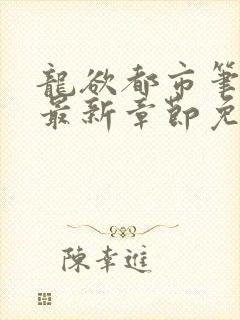 龍欲都市筆
最新章節免
陳幸進